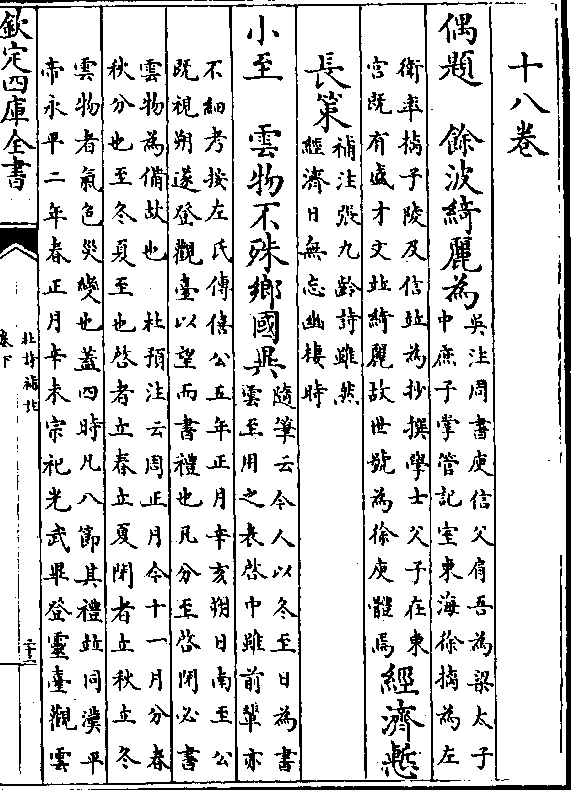 十八卷
偶題　餘波綺麗為
吳注周書庾信父肩吾為梁太子
中庶子掌管記室東海徐摛為左
衛率摛子陵及信竝為抄撰學士父子在東
宫既有盛才文竝綺麗故世號為徐庾體焉
經濟慙
長策
補注張九齡詩雖然
經濟日無忘幽棲時
小至　雲物不殊鄉國異
隨筆云今人以冬至日為書
雲至用之表啓中雖前輩亦
不細考按左氏傳僖公五年正月辛亥朔日南至公
既視朔遂登觀臺以望而書禮也凡分至啓閉必書
雲物為備故也　杜預注云周正月今十一月分春
秋分也至冬夏至也啓者立春立夏閉者立秋立冬
雲物者氣色災變也蓋四時凡八節其禮竝同漢平
帝永平二年春正月辛未宗祀光武畢登靈臺觀雲
欽定四庫全書
杜詩補
卷下